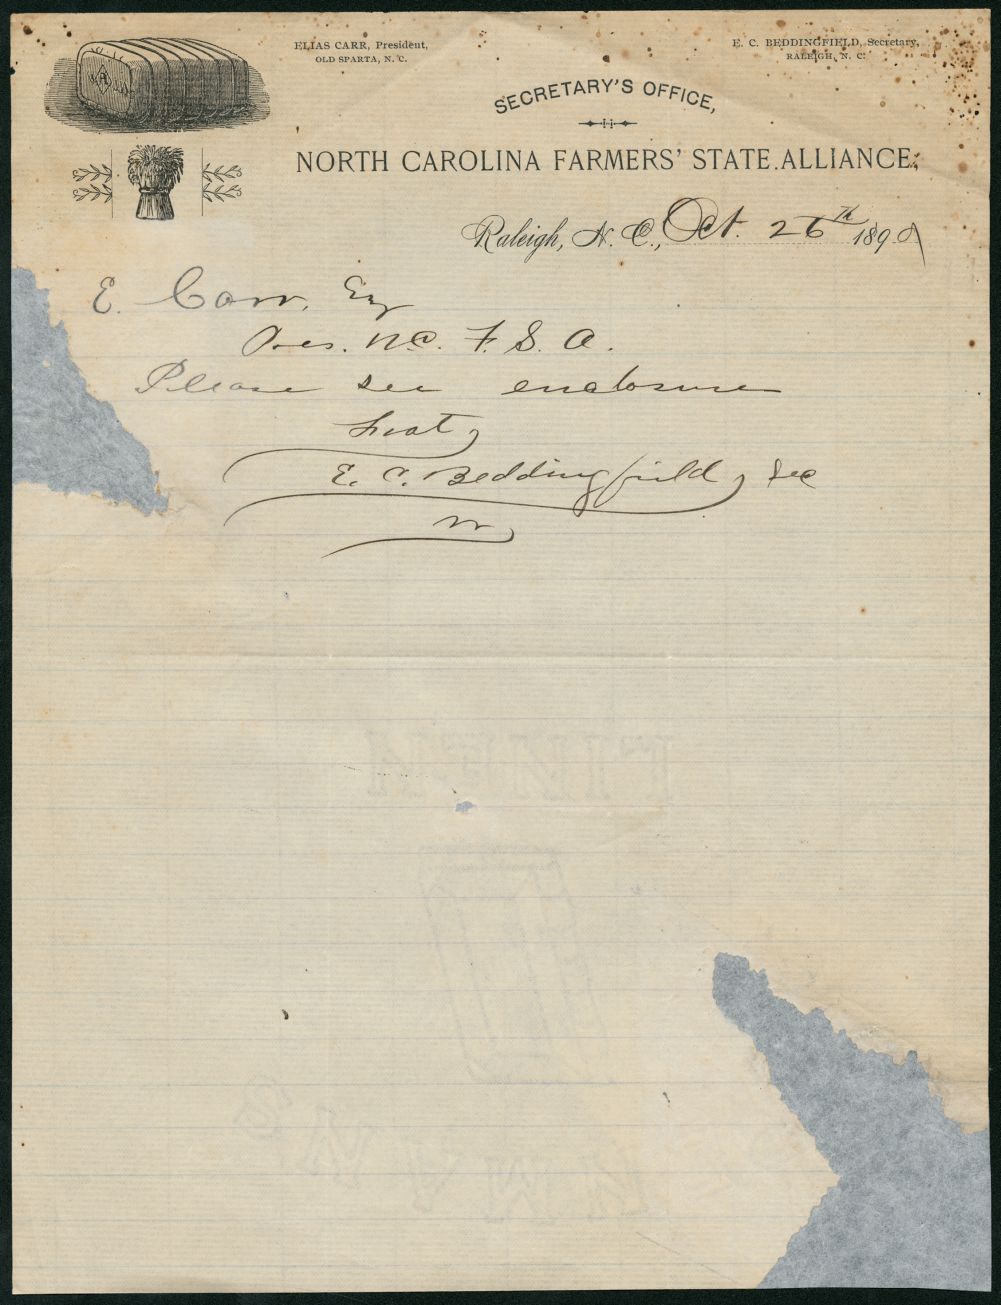 ELIAS CARR, President,
OLD SPARTA, N. C.
E. C. BEDDINGFIELD, Secretary,
RALEIGH, N. C.
SECRETARY'S OFFICE,
NORTH CAROLINA FARMERS' STATE ALLIANCE,
Raleigh, N. C., Oct. 26th 1890
E. Carr, Esq
Pres. N.C. F. S. A.
Please see enclosure
Frat,
E. C. Beddingfield, Sec